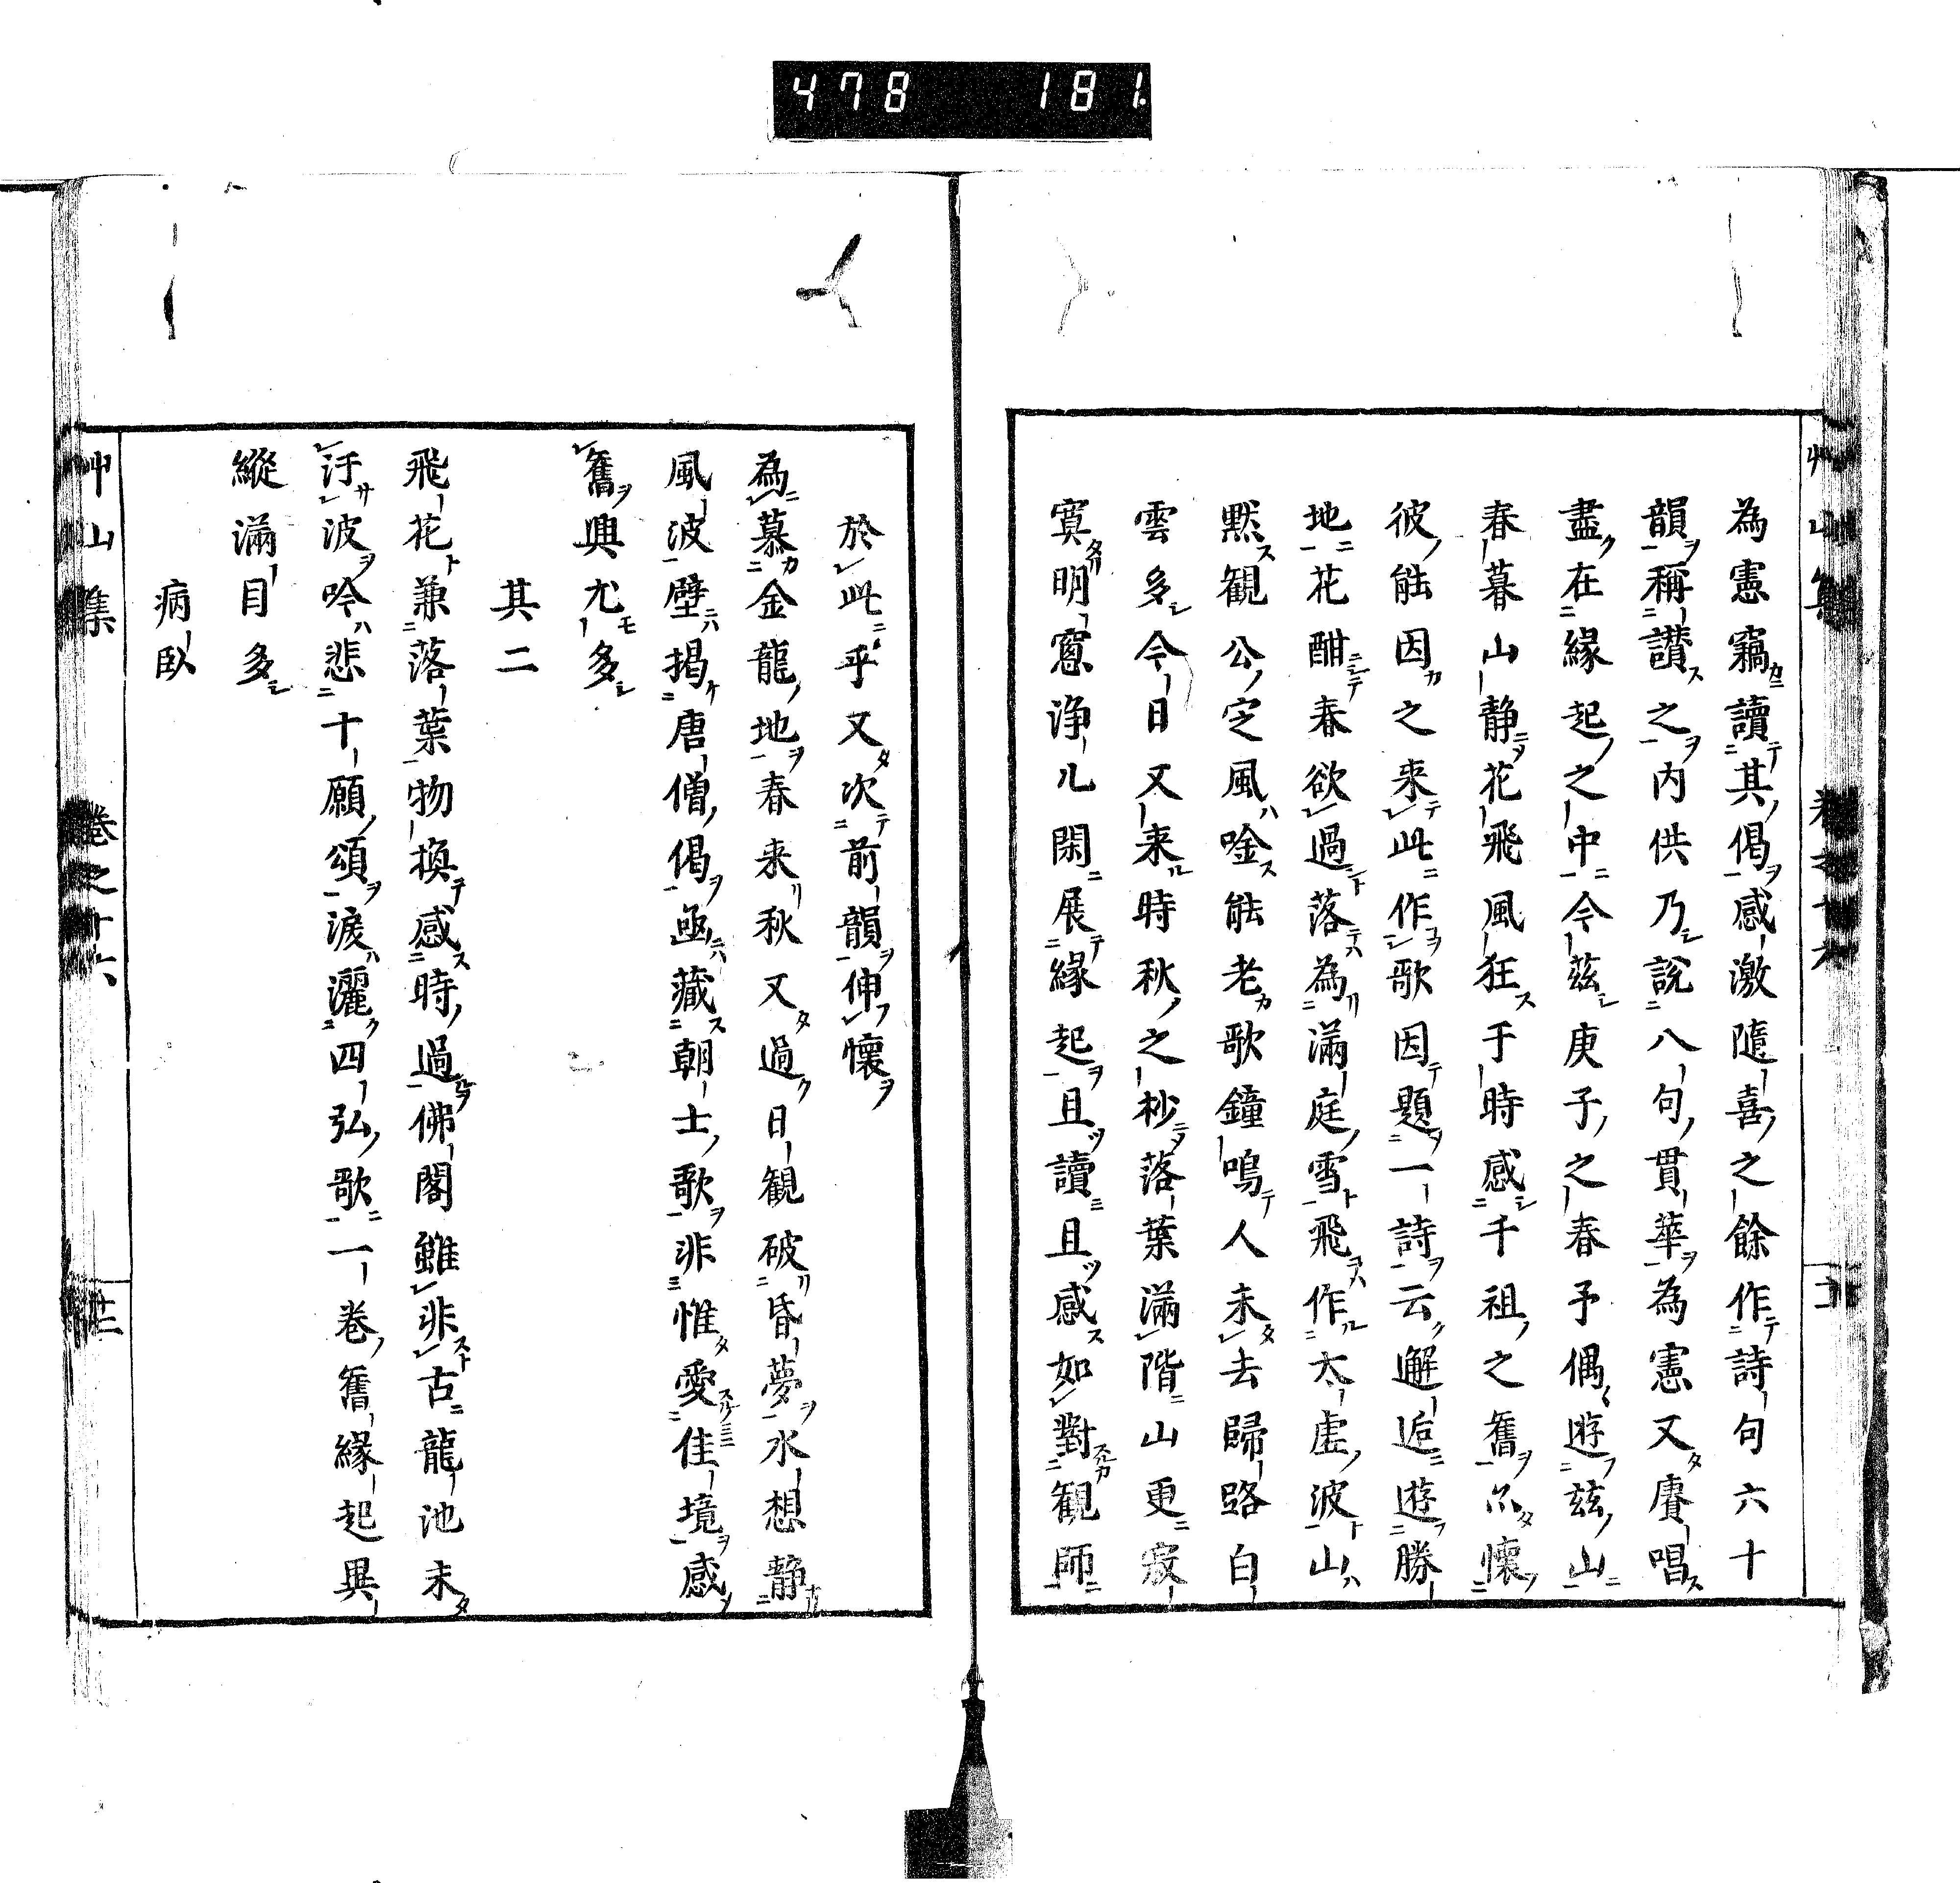 478 181
艸山集 卷之十六
為憲竊讀其偈感激隨喜之餘作詩句六十
韻稱讃之内供乃說八句貫華為憲又賡唱
盡在緣起之中今茲庚子之春予偶遊茲山
春暮山静花飛風狂于時感千祖之舊尒懷
彼能因之来此作歌因題一詩云邂逅遊勝
地花酣春欲過落為滿庭雪飛作太虛波山
默観公定風唫能老歌鐘鳴人未去歸路白
雲多今日又来時秋之杪落葉滿階山更寂
寞明窓浄几閑展緣起且讀且感如對観師
於此乎又次前韻伸懷
為慕金龍地春来秋又過日観破昏夢水想静
風波壁掲唐僧偈函藏朝士歌非惟愛佳境感
舊興尤多
其二
飛花兼落葉物換感時過佛閣雖非古龍池未
汙波吟悲十願頌淚灑四弘歌一卷舊緣起異
縱滿目多
病臥
艸山集 卷之十六 廿二